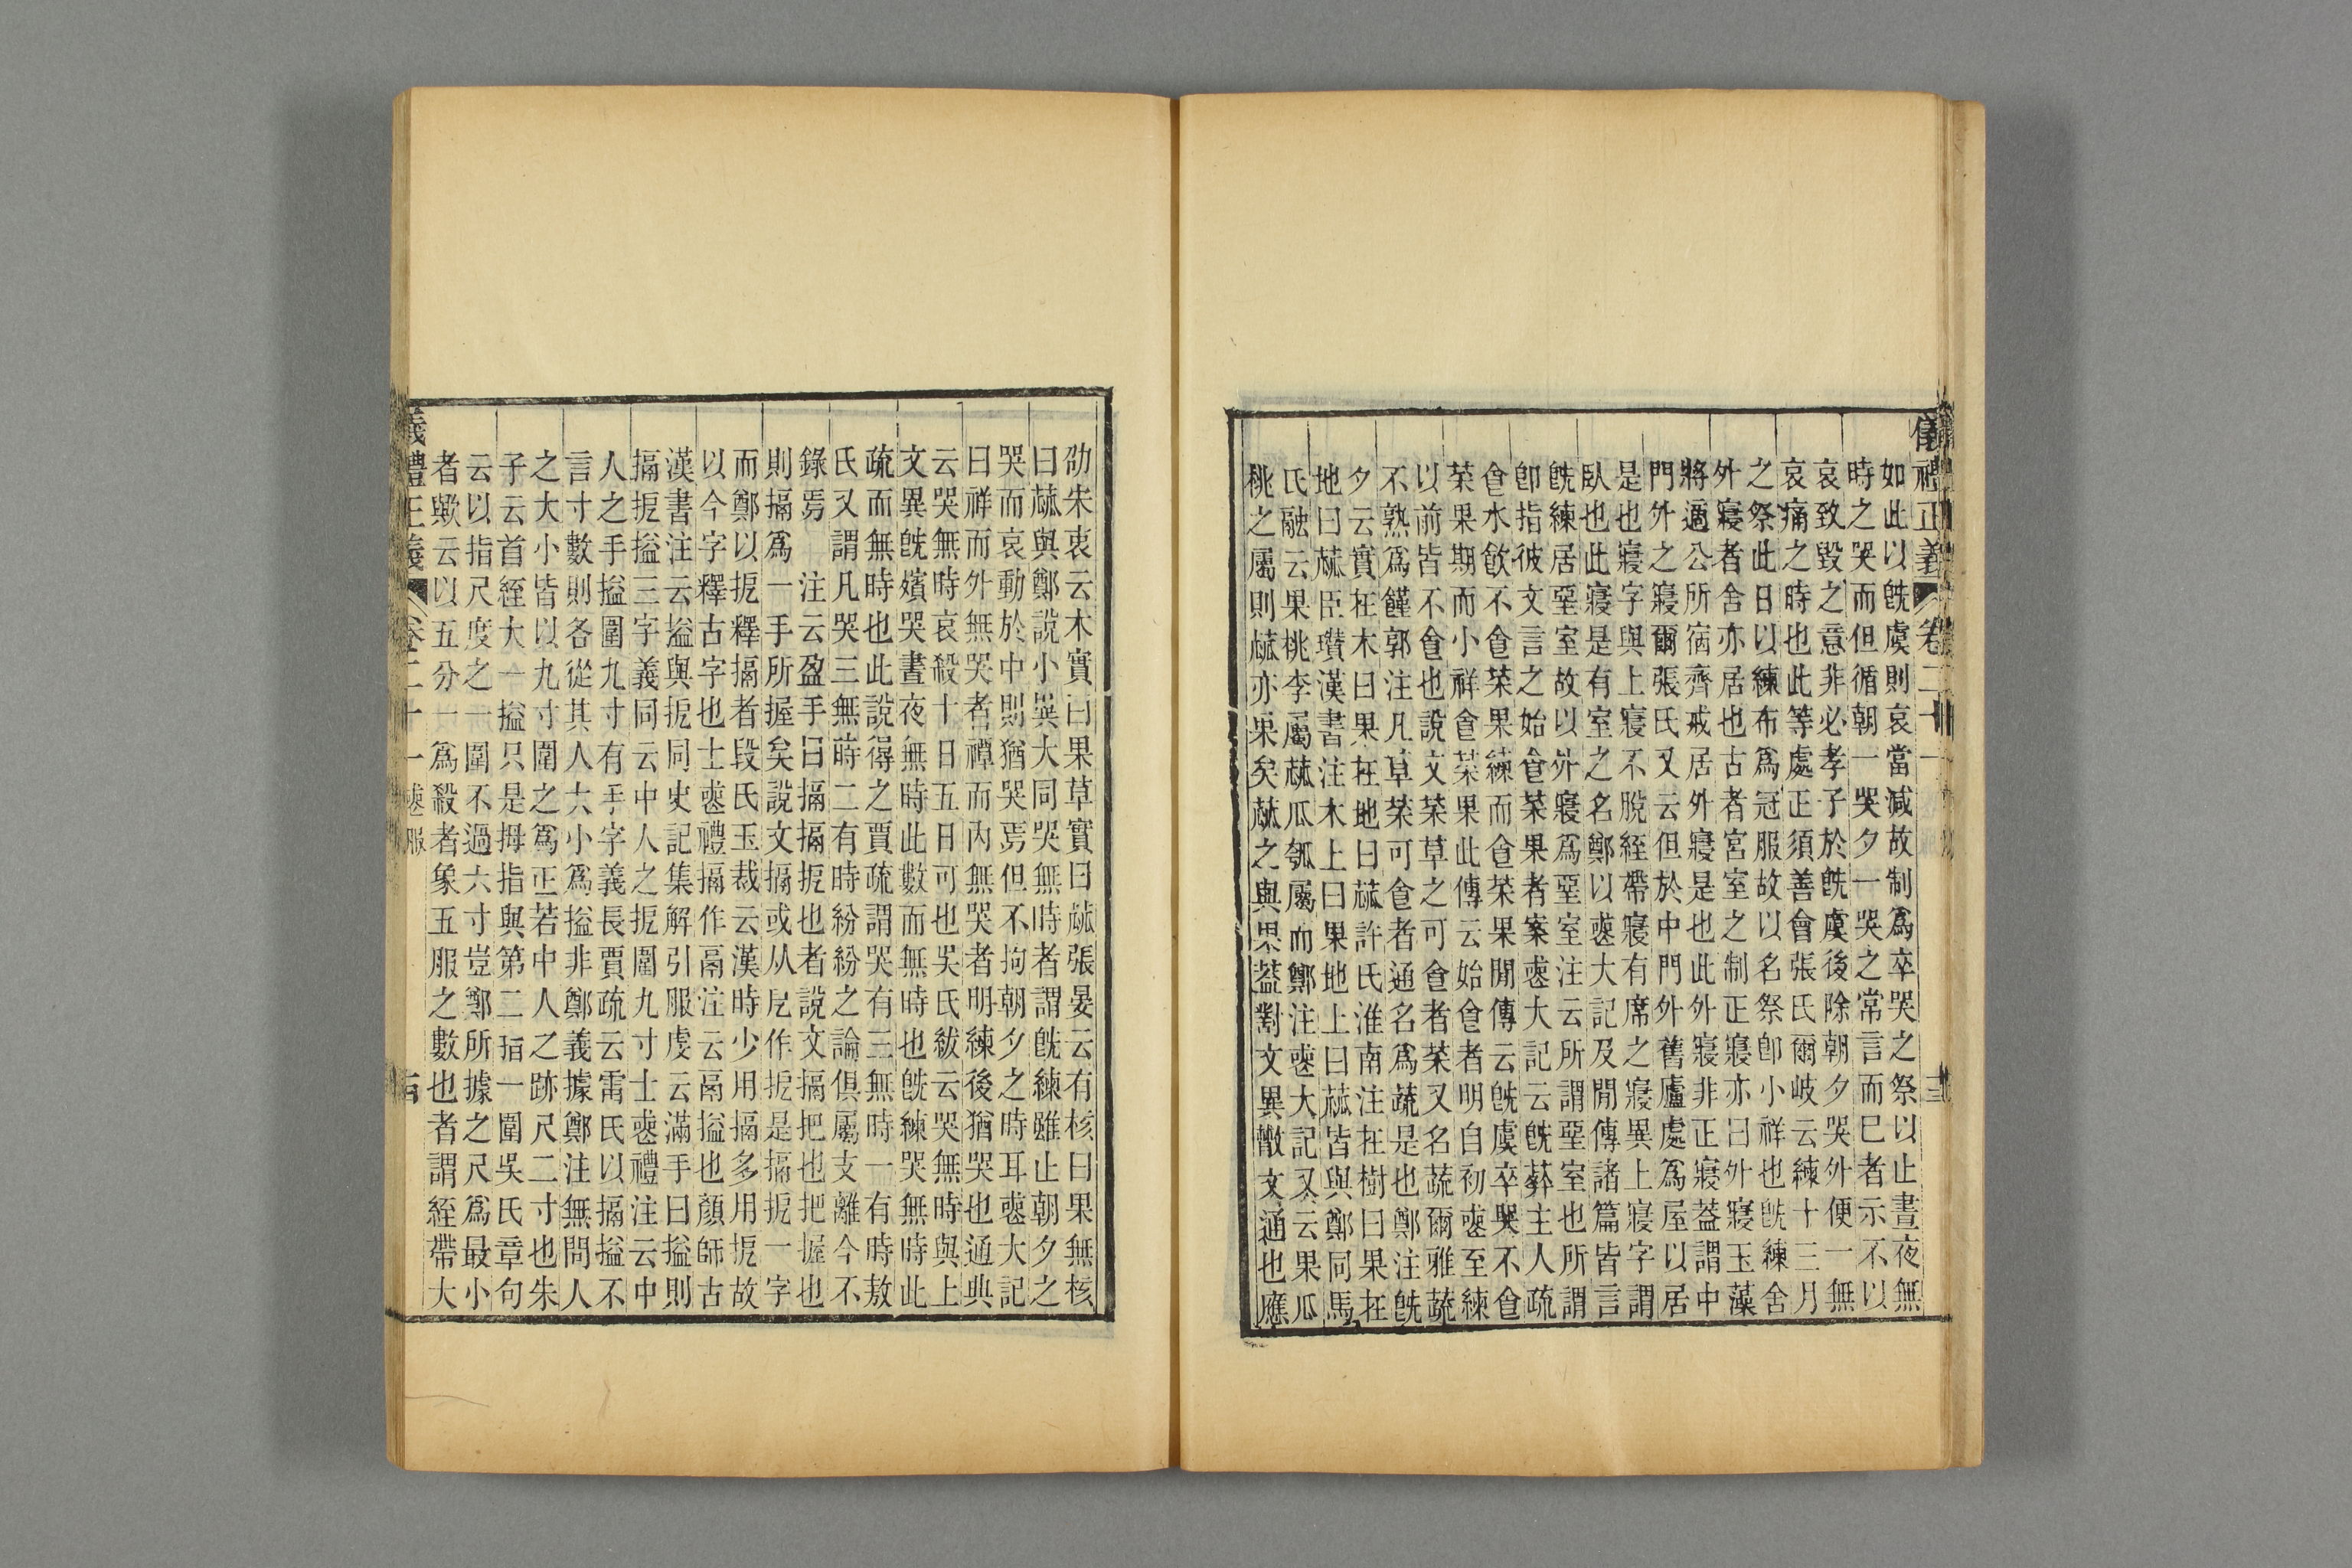 儀禮正義 卷二十一
如此以旣虞則哀當減故制爲卒哭之祭以止晝夜無
時之哭而但循朝一哭夕一哭之常言而已者示不以
哀致毀之意非必孝子於旣虞後除朝夕哭外便一無
哀痛之時也此等處正須善會張氏爾岐云練十三月
之祭此日以練布爲冠服故以名祭卽小祥也旣練舍
外寢者舍亦居也古者宮室之制正寢亦曰外寢玉藻
將適公所宿齊戒居外寢是也此外寢非正寢葢謂中
門外之寢爾張氏又云但於中門外舊廬處爲屋以居
是也寢字與上寢不脫絰帶寢有席之寢異上寢字謂
臥也此寢是有室之名鄭以喪大記及閒傳諸篇皆言
旣練居堊室故以外寢爲堊室注云所謂堊室也所謂
卽指彼文言之始食菜果者案喪大記云旣葬主人疏
食水飮不食菜果練而食菜果閒傳云旣虞卒哭不食
菜果期而小祥食菜果此傳云始食者明自初喪至練
以前皆不食也說文菜草之可食者菜又名蔬爾雅蔬
不熟爲饉郭注凡草菜可食者通名爲蔬是也鄭注旣
夕云實在木曰果在地曰蓏許氏淮南注在樹曰果在
地曰蓏臣瓚漢書注木上曰果地上曰蓏皆與鄭同馬
氏融云果桃李屬蓏瓜瓠屬而鄭注喪大記又云果瓜
桃之屬則蓏亦果矣蓏之與果葢對文異散文通也應
劭宋衷云木實曰果草實曰蓏張晏云有核曰果無核
曰蓏與鄭說小異大同哭無時者謂旣練雖止朝夕之
哭而哀動於中則猶哭焉但不拘朝夕之時耳喪大記
曰祥而外無哭者禫而內無哭者明練後猶哭也通典
云哭無時哀殺十日五日可也吳氏紱云哭無時與上
文異旣殯哭晝夜無時此數而無時也旣練哭無時此
疏而無時也此說得之賈疏謂哭有三無時一有時敖
氏又謂凡哭三無時二有時紛紛之論俱屬支離今不
錄焉　注云盈手曰搹搹扼也者說文搹把也把握也
則搹爲一手所握矣說文搹或从戹作扼是搹扼一字
而鄭以扼釋搹者段氏玉裁云漢時少用搹多用扼故
以今字釋古字也士喪禮搹作鬲注云鬲搤也顏師古
漢書注云搤與扼同史記集解引服虔云滿手曰搤則
搹扼搤三字義同云中人之扼圍九寸士喪禮注云中
人之手搤圍九寸有手字義長賈疏云雷氏以搹搤不
言寸數則各從其人大小爲搤非鄭義據鄭注無問人
之大小皆以九寸圍之爲正若中人之跡尺二寸也朱
子云首絰大一搤只是拇指與第二指一圍吳氏章句
云以指尺度之一圍不過六寸豈鄭所據之尺爲最小
者歟云以五分一爲殺者象五服之數也者謂絰帶大
禮正義 卷二十一 喪服